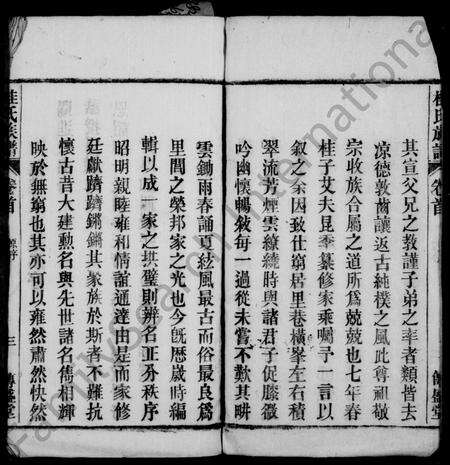 桂氏族譜
卷首
其宣父兄之教謹子弟之率者類皆去
凉德敦齒讓返古純樸之風此尊祖敬
宗收族合屬之道所爲兢兢也七年春
桂子艾夫昆季纂修家乘囑予一言以
叙之余因致仕窮居里巷橫琴左右積
翠流芳煙雲繚繞時與諸君子促膝微
吟幽懷暢敘每一過從未嘗不歎其畊
雲鋤雨春誦夏絃風最古而俗最良爲
里閭之榮邦家之光也今旣歴歲時編
輯以成一家之珙璧則辨名正分秩序
昭明親睦雍和情誼通達由是而家修
廷獻躋躋鏘鏘其家族於斯者不難抗
懷古昔大建勳名與先世諸名雋相輝
映於無窮也其亦可以雍然肅然快然
桂氏族譜
卷首
三
FamilySearch International